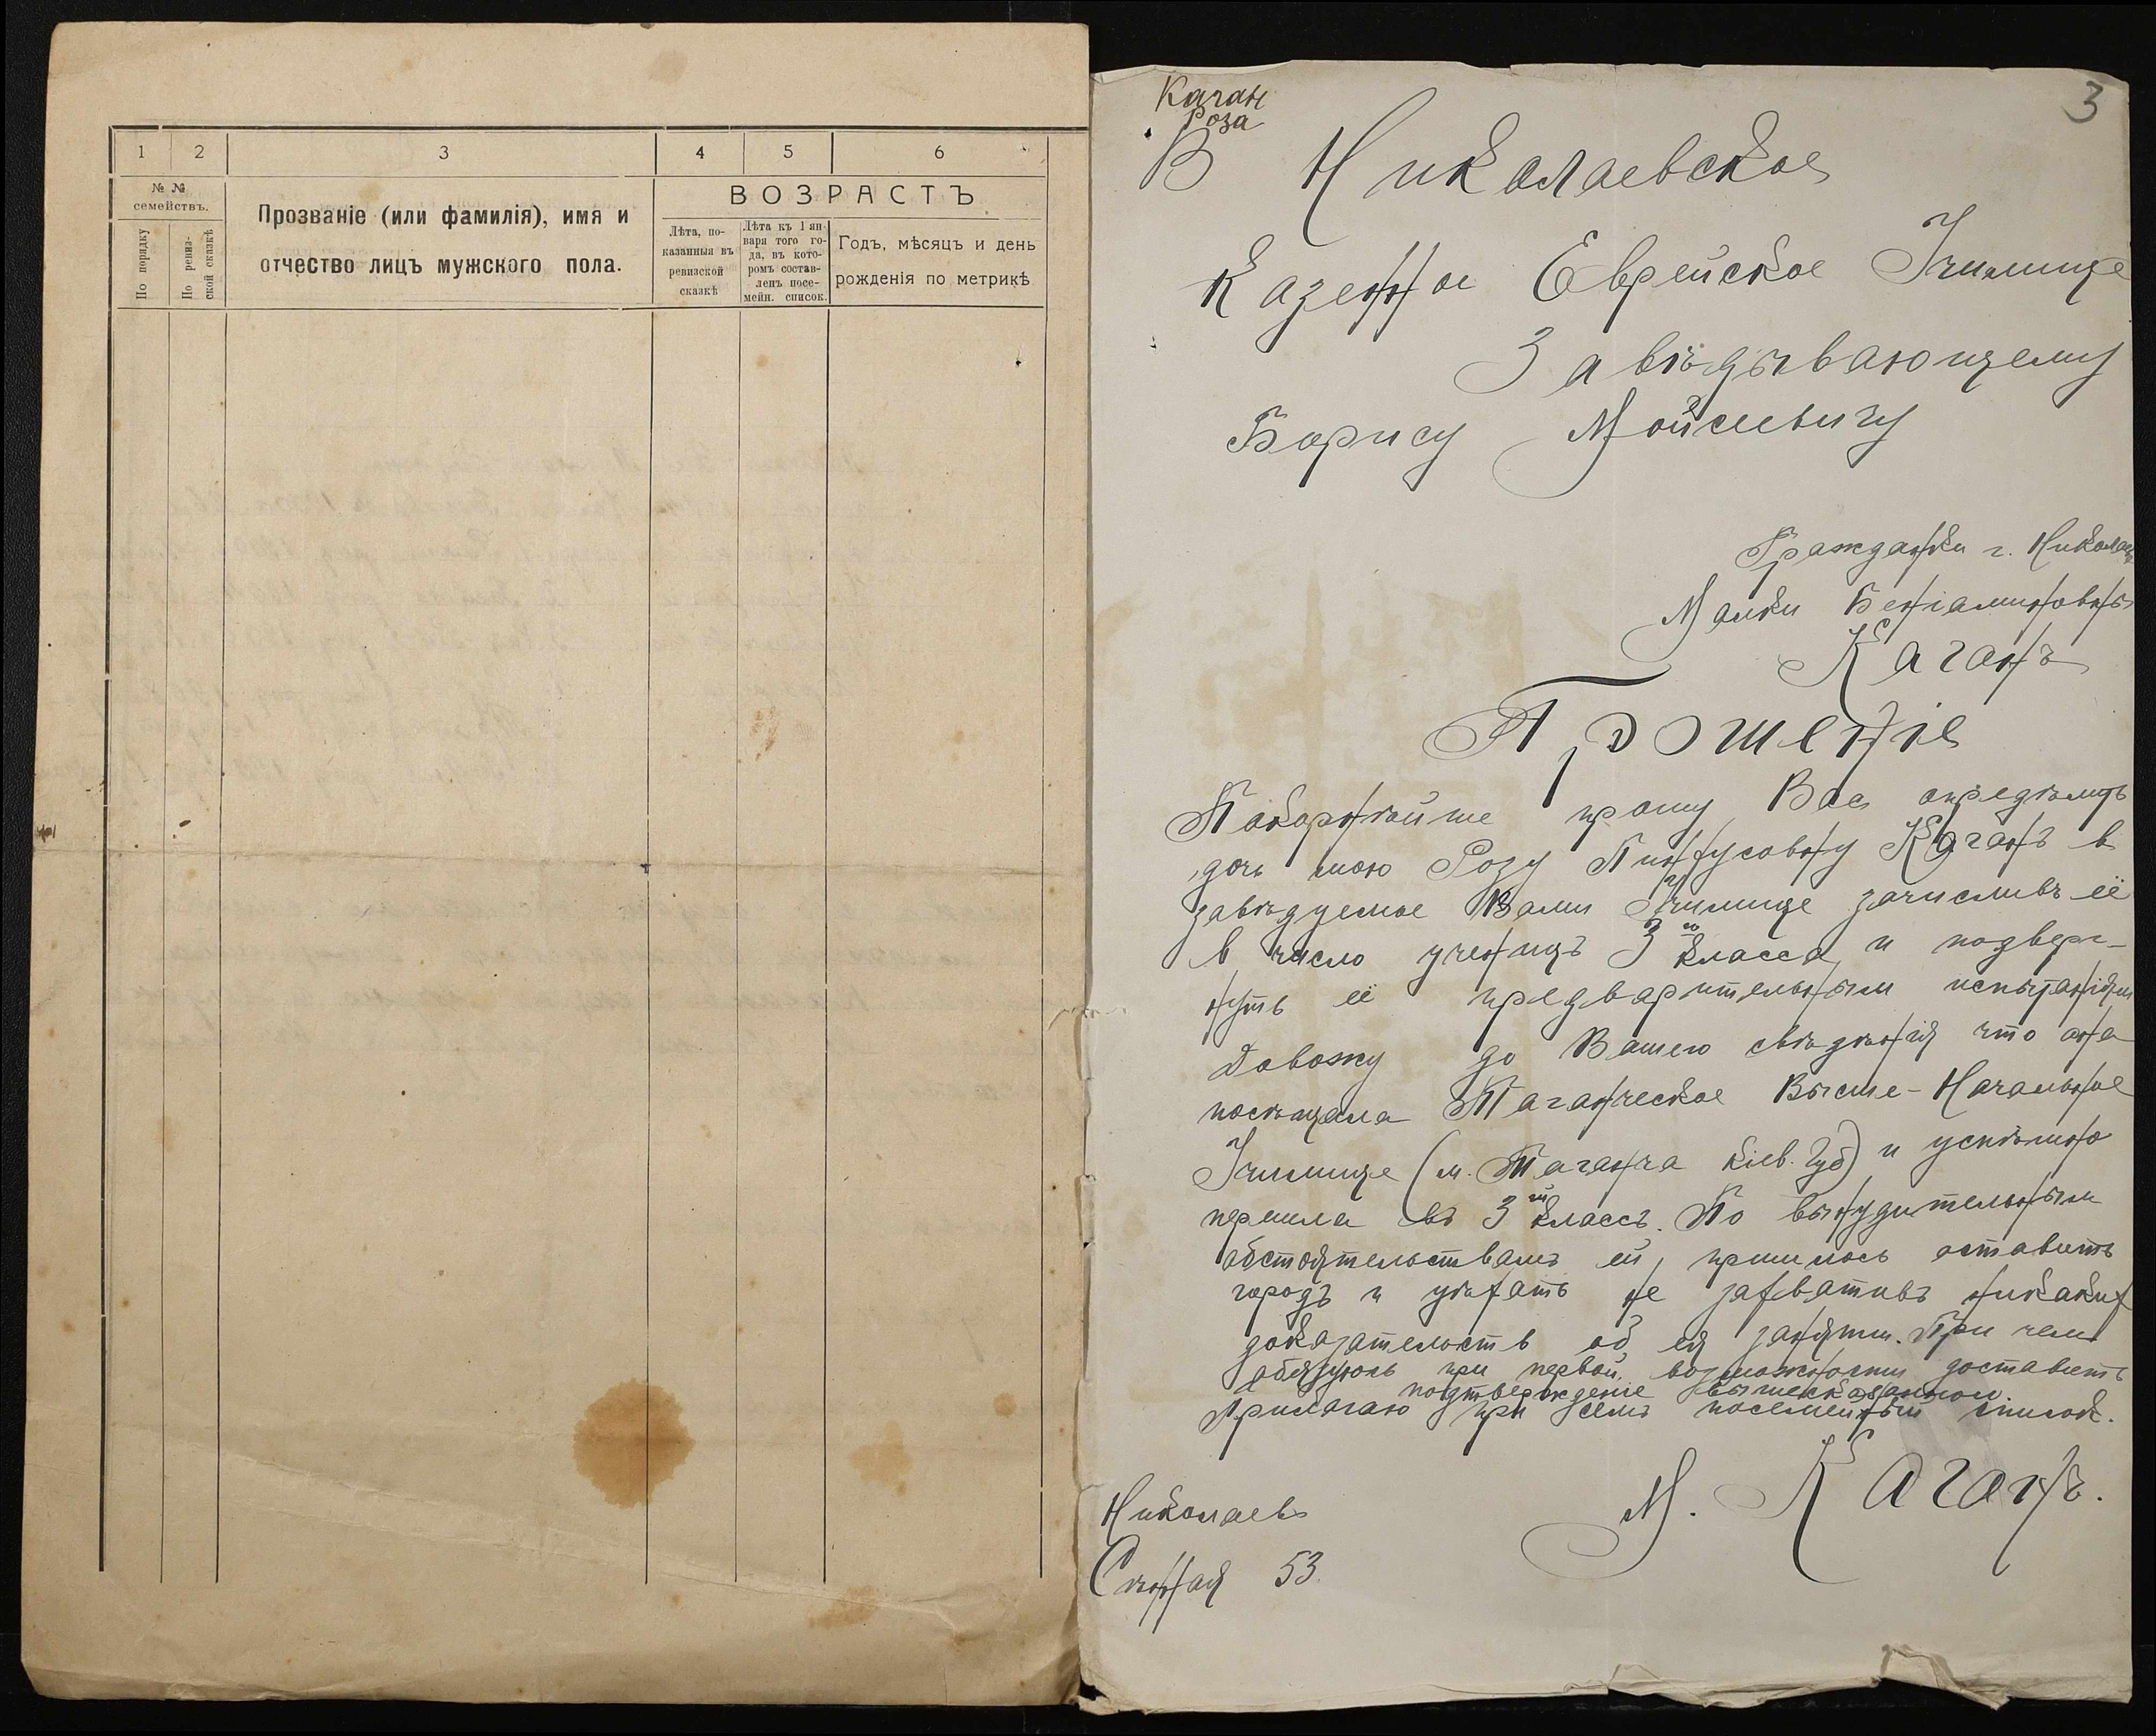 1 2 3 4 5 6
№ №
семействъ.
По порядку
По ревиз-
ской сказкѣ
Прозваніе (или фамилія), имя и
отчество лицъ мужского пола.
ВОЗРАСТЪ
Лѣта, по-
казанныя въ
ревизской
сказкѣ
Лѣта къ 1 ян-
варя того го-
да, въ кото-
ромъ состав-
ленъ посе-
мейн. список.
Годъ, мѣсяцъ и день
рожденія по метрикѣ
3
Каган
Роза
В Николаевское
Казенное Еврейское Училище
Завѣдывающему
Борису Мойсеевичу
Гражданки г. Николаев
Малки Беніаминовны
Каганъ
Прошеніе
Покорнѣйше прошу Вас опредѣлить
дочь мою Розу Пинхусовну Каганъ в
завѣдуемое Вами Училище зачисливъ её
в число ученицъ 3го класса и подверг-
нуть её предварительным испытаніям
Довожу до Вашего свѣдѣнія что она
посѣщала Таганческое Высше-Начальное
Училище (м. Таганча Кіев. Губ) и успѣшно
перешла въ 3й классъ. По вынудительным
обстоятельствамъ ей пришлось оставить
городъ и уѣхать не захвативъ никаких
доказательств об ея занятіи. При чем
обязуюсь при первой возможности доставить
подтвержденіе вышесказанном.
Прилагаю при семъ посемейный список.
М. Каганъ.
Николаевъ
Сѣнная 53.